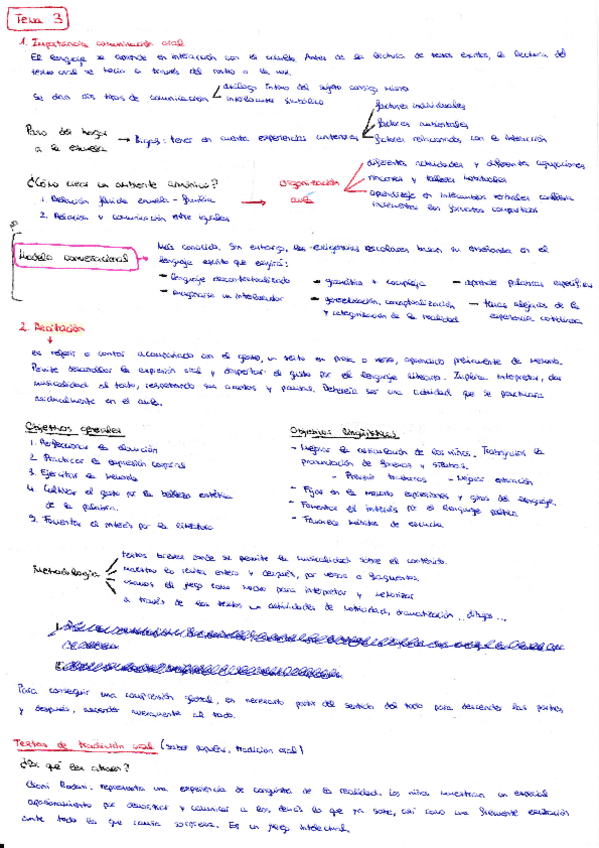 Tema 3
1. Importancia comunicación oral
El lenguaje se aprende en interacción con el mundo. Antes de la lectura de textos escritos, la lectura del
texto oral se hacía a través del rostro o la voz.
Se dan dos tipos de comunicación
diálogo íntimo del sujeto consigo mismo
simbólico
Paso del hogar
a la escuela
→ tener en cuenta experiencias anteriores
factores individuales
factores ambientales
factores relacionados con la interacción
¿Cómo crear un ambiente?
1. Relación fluida escuela - familia
2. Relación y comunicación entre iguales
Organización
aula
diferentes actividades y diferentes agrupaciones
rincones y talleres
aprendizaje en intercambios verbales
Modelo conversacional
Más conocido. Sin embargo, las exigencias escolares basan su enseñanza en el
lenguaje escrito que exigirá:
- lenguaje descontextualizado
- un interlocutor
- gramática + compleja
- generalización, conceptualización
y categorización de la realidad
- aprender palabras específicas
- temas alejados de la
experiencia cotidiana
2. Recitación
es repetir o contar acompañado con el gesto, un texto en prosa o verso, aprendido previamente de memoria.
Permite desarrollar la expresión oral y despertar el gusto por el lenguaje literario. Implica interpretar, dar
musicalidad al texto, respetando sus acentos y pausas. Debería ser una actividad que se practicara
en el aula.
Objetivos generales
1. Perfeccionar la elocución
2. Practicar la expresión corporal
3. Ejercitar la memoria
4. Cultivar el gusto por la belleza estética
de la palabra.
5. Fomentar el interés por la literatura
Objetivos lingüísticos
- Mejorar la articulación de los niños.
pronunciación de fonemas y sílabas.
- Prevenir trastornos - Mejorar
- Fijar en la memoria expresiones y giros del lenguaje.
- Fomentar el interés por el lenguaje poético
- Favorece hábitos de escucha.
Metodología
textos breves donde se permite la musicalidad sobre el contenido.
maestro lo recita entero y después, por versos o fragmentos.
usamos el juego como medio para interpretar y memorizar
a través de los textos actividades de motricidad, dramatización, dibujo...
Para conseguir una comprensión global, es necesario partir del sentido del todo para descender las partes
y después, ascender nuevamente al todo.
Textos de tradición oral (saber popular, tradición oral)
¿De qué les sirven?
Gianni Rodari: representa una experiencia de conquista de la realidad. Los niños muestran un especial
apasionamiento por demostrar y comunicar a los demás lo que ya sabe, así como una
ante todo lo que causa sorpresa. Es un juego intelectual.